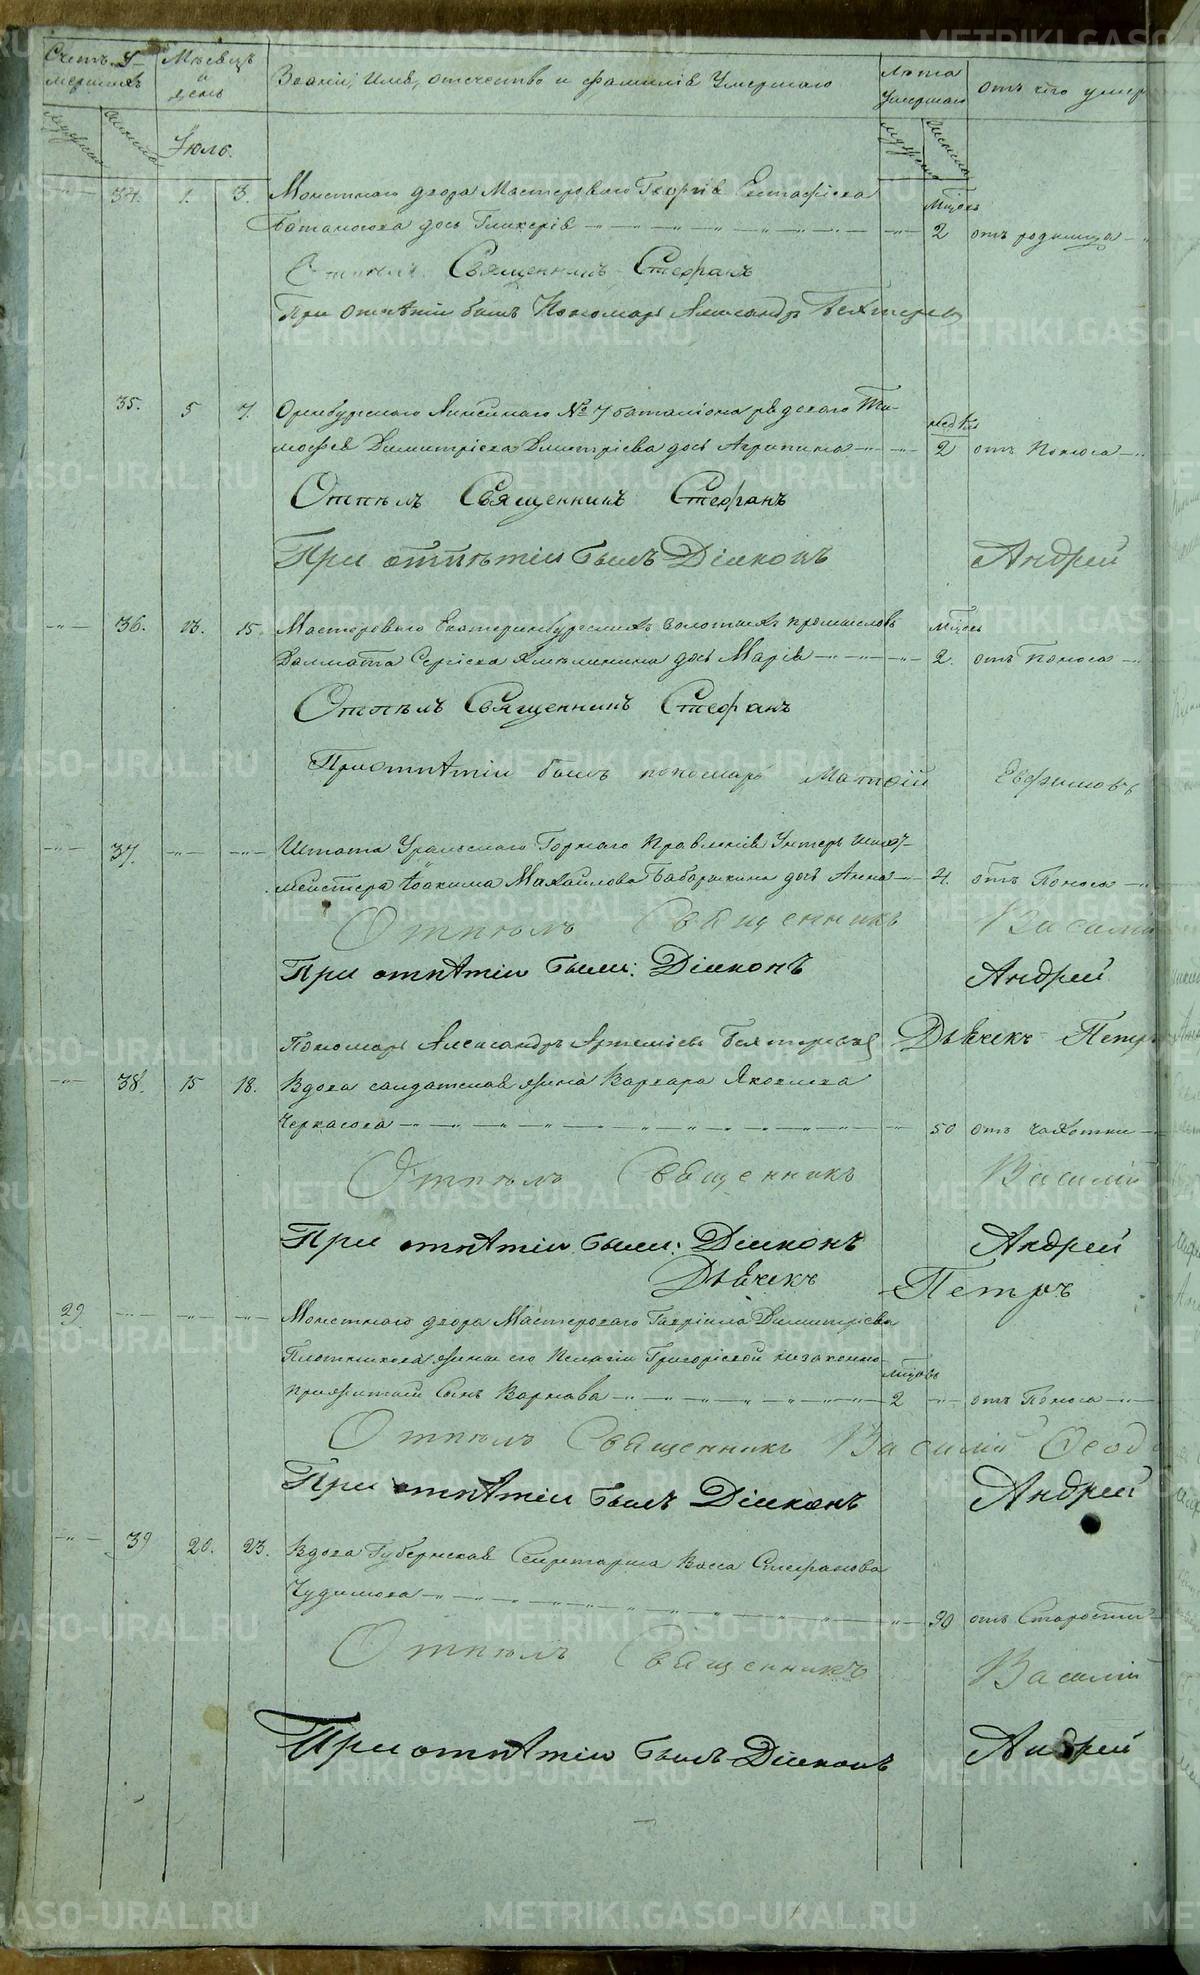 Счетъ У-
мершихъ
Мѣсяцъ
и
день
Званіе, имя, отечество и фамилія Умершаго
Лѣта
Умершаго
отъ чего умер
мужеска
женска
Іюль.
мужеска
женска
34. 1. 3. Монетнаго двора Мастероваго Георгія Евстафіева
мѣсяц
дочь Гликерія 2 отъ родимца
Отпѣлъ Священникъ Стефанъ
При отпѣтіи былъ Пономарь Александръ Бехтерев
35. 5 7. Оренбургскаго Линейнаго № 7 баталіона рядоваго Ти-
недѣл
мофея Димитріева Дмитріева дочь Агрипина 2 отъ Поноса
Отпѣлъ Священникъ Стефанъ
При отпѣтіи былъ Діаконъ Андрей
36. 13. 15. Мастероваго Екатеринбургскихъ золотыхъ промысловъ
мѣсяц
Далмата Сергіева дочь Марія 2. отъ Поноса
Отпѣлъ Священникъ Стефанъ
При отпѣтіи былъ пономарь Матѳій Евфимовъ
37. Штата Уральскаго Горнаго Правленія Унтеръ Шихт-
мейстера Іоакима Михайлова Бабарыкина дочь Анна 4. отъ Поноса
Отпѣлъ Священникъ Василій
При отпѣтіи были: Діаконъ Андрей
Пономарь Александръ Артеміевъ Бехтеревъ Дьячекъ Петръ
38. 15 18. Вдова салдатская жена Варвара Яковлева
Черкасова 50 отъ чахотки
Отпѣлъ Священникъ Василій
При отпѣтіи были: Діаконъ Андрей
Дьячекъ Петръ
29 Монетнаго двора Мастероваго Гавріила Димитріева
Плотникова жены его Пелагіи Григоріевой незаконно
мѣсяцовъ
прижитый сынъ Варнава 2 отъ Поноса
Отпѣлъ Священникъ Василій Ѳеод
При отпѣтіи былъ Діаконъ Андрей
39 20. 23. Вдова Губернская Секретарша Васса Стефанова
Чудинова 90 отъ Старости
Отпѣлъ Священникъ Василій
При отпѣтіи былъ Діаконъ Андрей